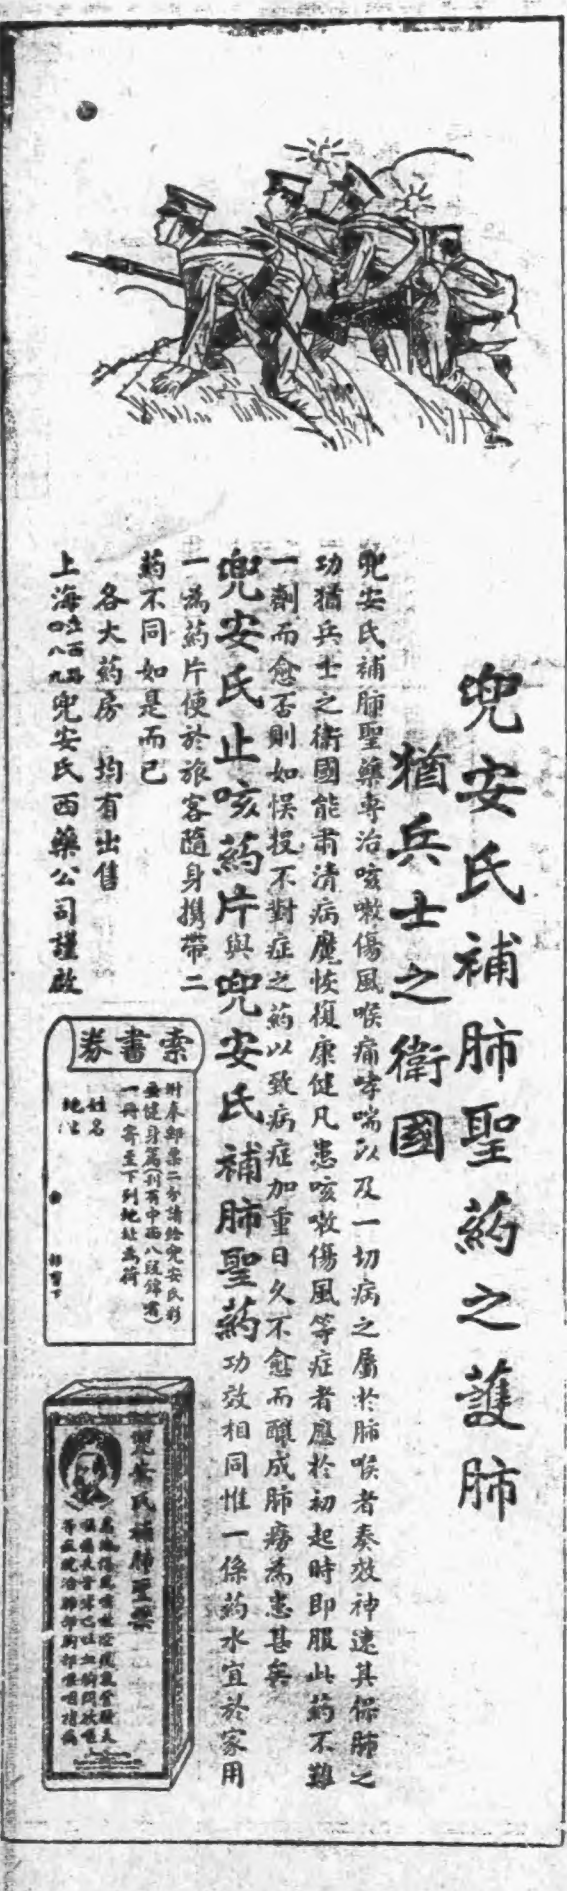 兜安氏補肺聖药之護肺
猶兵士之衛國
兜安氏補肺聖藥專治咳嗽傷風喉痛哮喘以及一切病之屬於肺喉者奏效神速其保肺之
功猶兵士之衛國能肅清病魔恢復康健凡患咳嗽傷風等症者應於初起時即服此药不難
一劑而愈否則如悞投不對症之药以致病症加重日久不愈而釀成肺癆為患甚矣
兜安氏止咳药片與兜安氏補肺聖药功效相同惟一係药水宜於家用
一為药片便於旅客隨身携帶二
药不同如是而已
各大药房 均有出售
上海 四八九 兜安氏西藥公司謹啟
索書券
附奉郵票二分請給兜安氏彩
畫健身篇(刊有中西八段錦嘴)
一冊寄至下列地址為荷
姓名
地址
兜安氏補肺聖藥